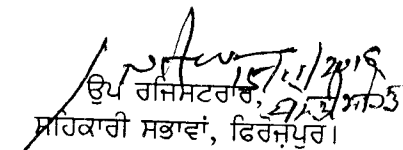 15/11/2016
ਉਪ ਰਜਿਸਟਰਾਰ,
ਸਹਿਕਾਰੀ ਸਭਾਵਾਂ, ਫਿਰੋਜ਼ਪੁਰ।